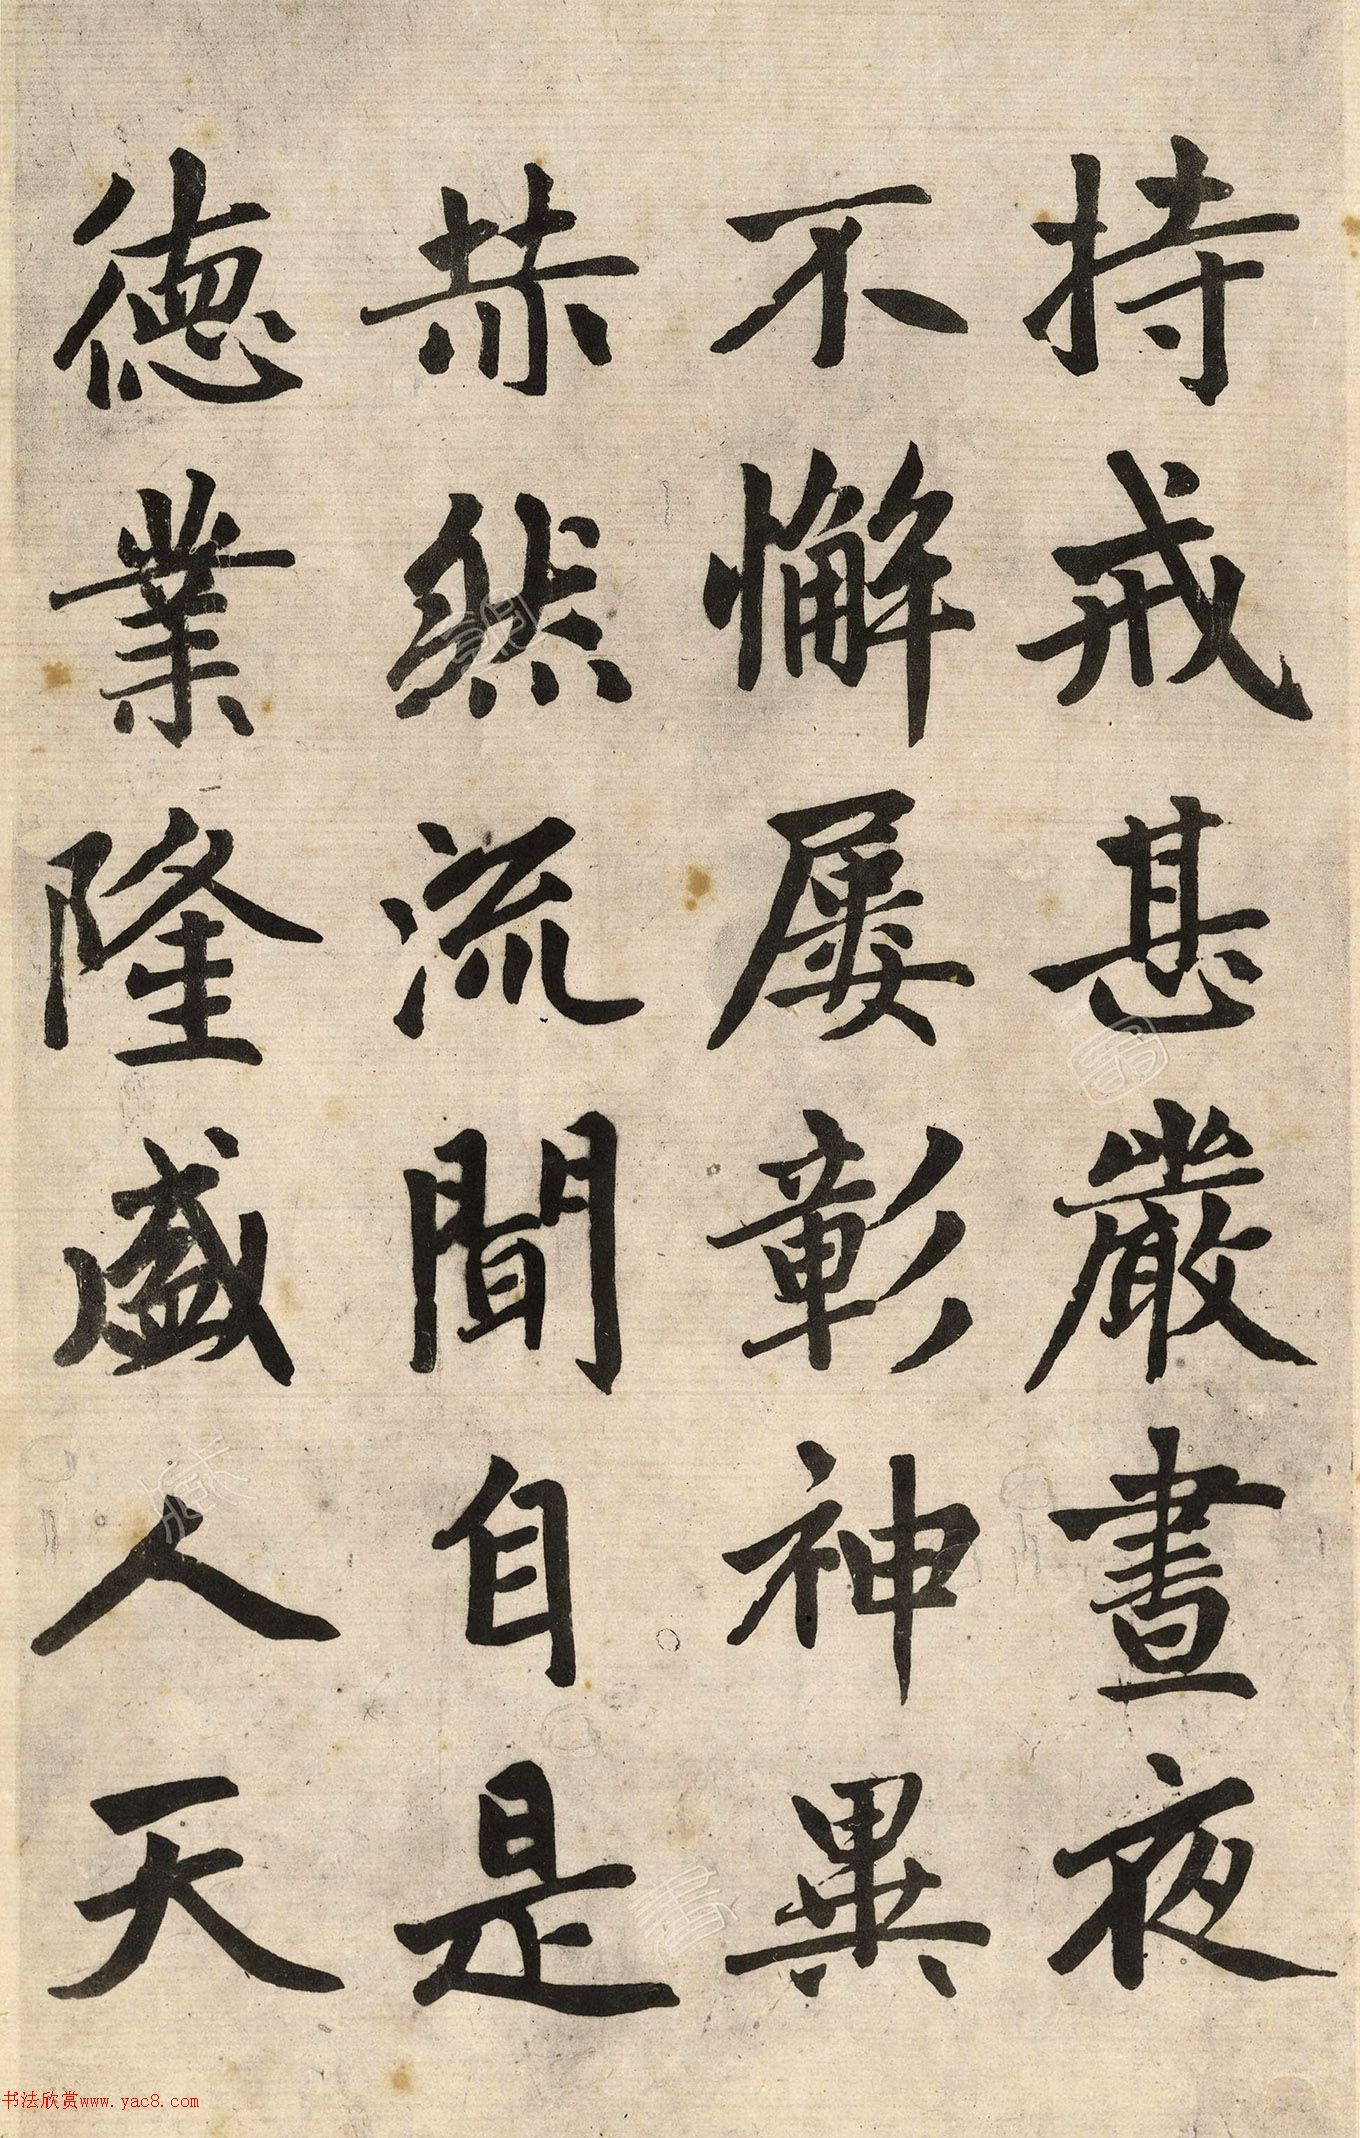 持戒甚嚴晝夜
不懈屢彰神異
赫然流聞自是
德業隆盛人天
书法欣赏www.yac8.com